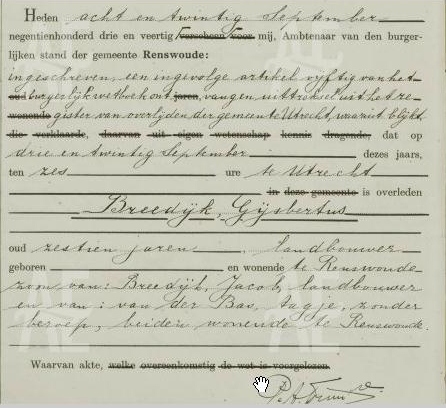 Heden acht en twintig September
negentienhonderd drie en veertig verscheen voor mij, Ambtenaar van den burger-
lijken stand der gemeente Renswoude:
ingeschreven, een ingevolge artikel vijftig van het
oud burgerlijk wetboek ont jaren, vangen uittreksel uit het re-
wonende gister van overlijden der gemeente Utrecht, waaruit blijkt
die verklaarde, daarvan uit eigen wetenschap kennis dragende, dat op
drie en twintig September dezes jaars,
ten zes ure te Utrecht
in deze gemeente is overleden
Breedijk, Gijsbertus
oud zestien jaren, landbouwer
geboren en wonende te Renswoude
zoon van: Breedijk, Jacob, landbouwer
en van: van der Bas, Aagje, zonder
beroep, beiden wonende te Renswoude.
Waarvan akte, welke overeenkomstig de wet is voorgelezen.